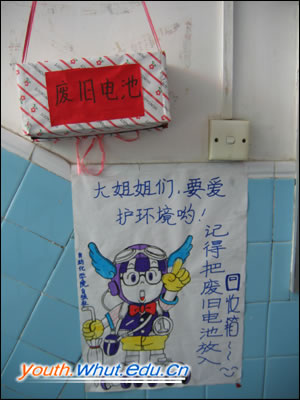 废旧电池
大姐姐们,要爱
护环境哟!
记得把废旧电池放入
回收箱~~
youth.Whut.edu.cn